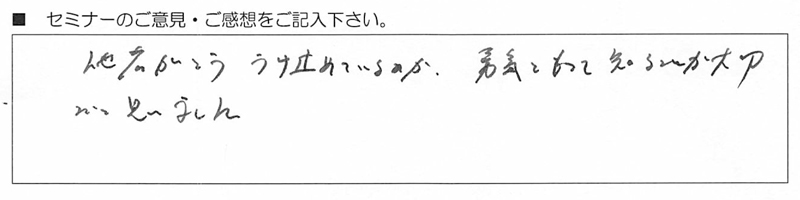 ■ セミナーのご意見・ご感想をご記入下さい。
他者がどう うけ止めているのか、勇気をもって知るのが大切
だと思いました